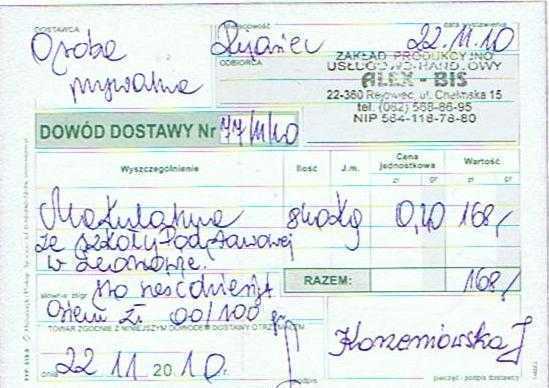 DOSTAWCA
Osoba
prywatna
Miejscowość
Rejowiec
data wystawienia
22.11.10
ODBIORCA
ZAKŁAD PRODUKCYJNO
USŁUGOWO-HANDLOWY
ALEX - BIS
22-360 Rejowiec, ul. Chełmska 15
tel. (082) 568-86-95
NIP 564-116-78-80
DOWÓD DOSTAWY Nr 77/11/10
Wyszczególnienie Ilość J.m. Cena jednostkowa Wartość
zł gr zł gr
Makulatura 840 kg 0,20 168,-
ze szkoły Podstawowej
w
RAZEM: 168,-
słownie złotych
sto sześćdziesiąt
osiem zł 00/100 gr
TOWAR ZGODNIE Z NINIEJSZYM DOWODEM DOSTAWY OTRZYMAŁEM
dnia 22 11 2010.
Korzeniowska J
pieczęć i podpis dostawcy